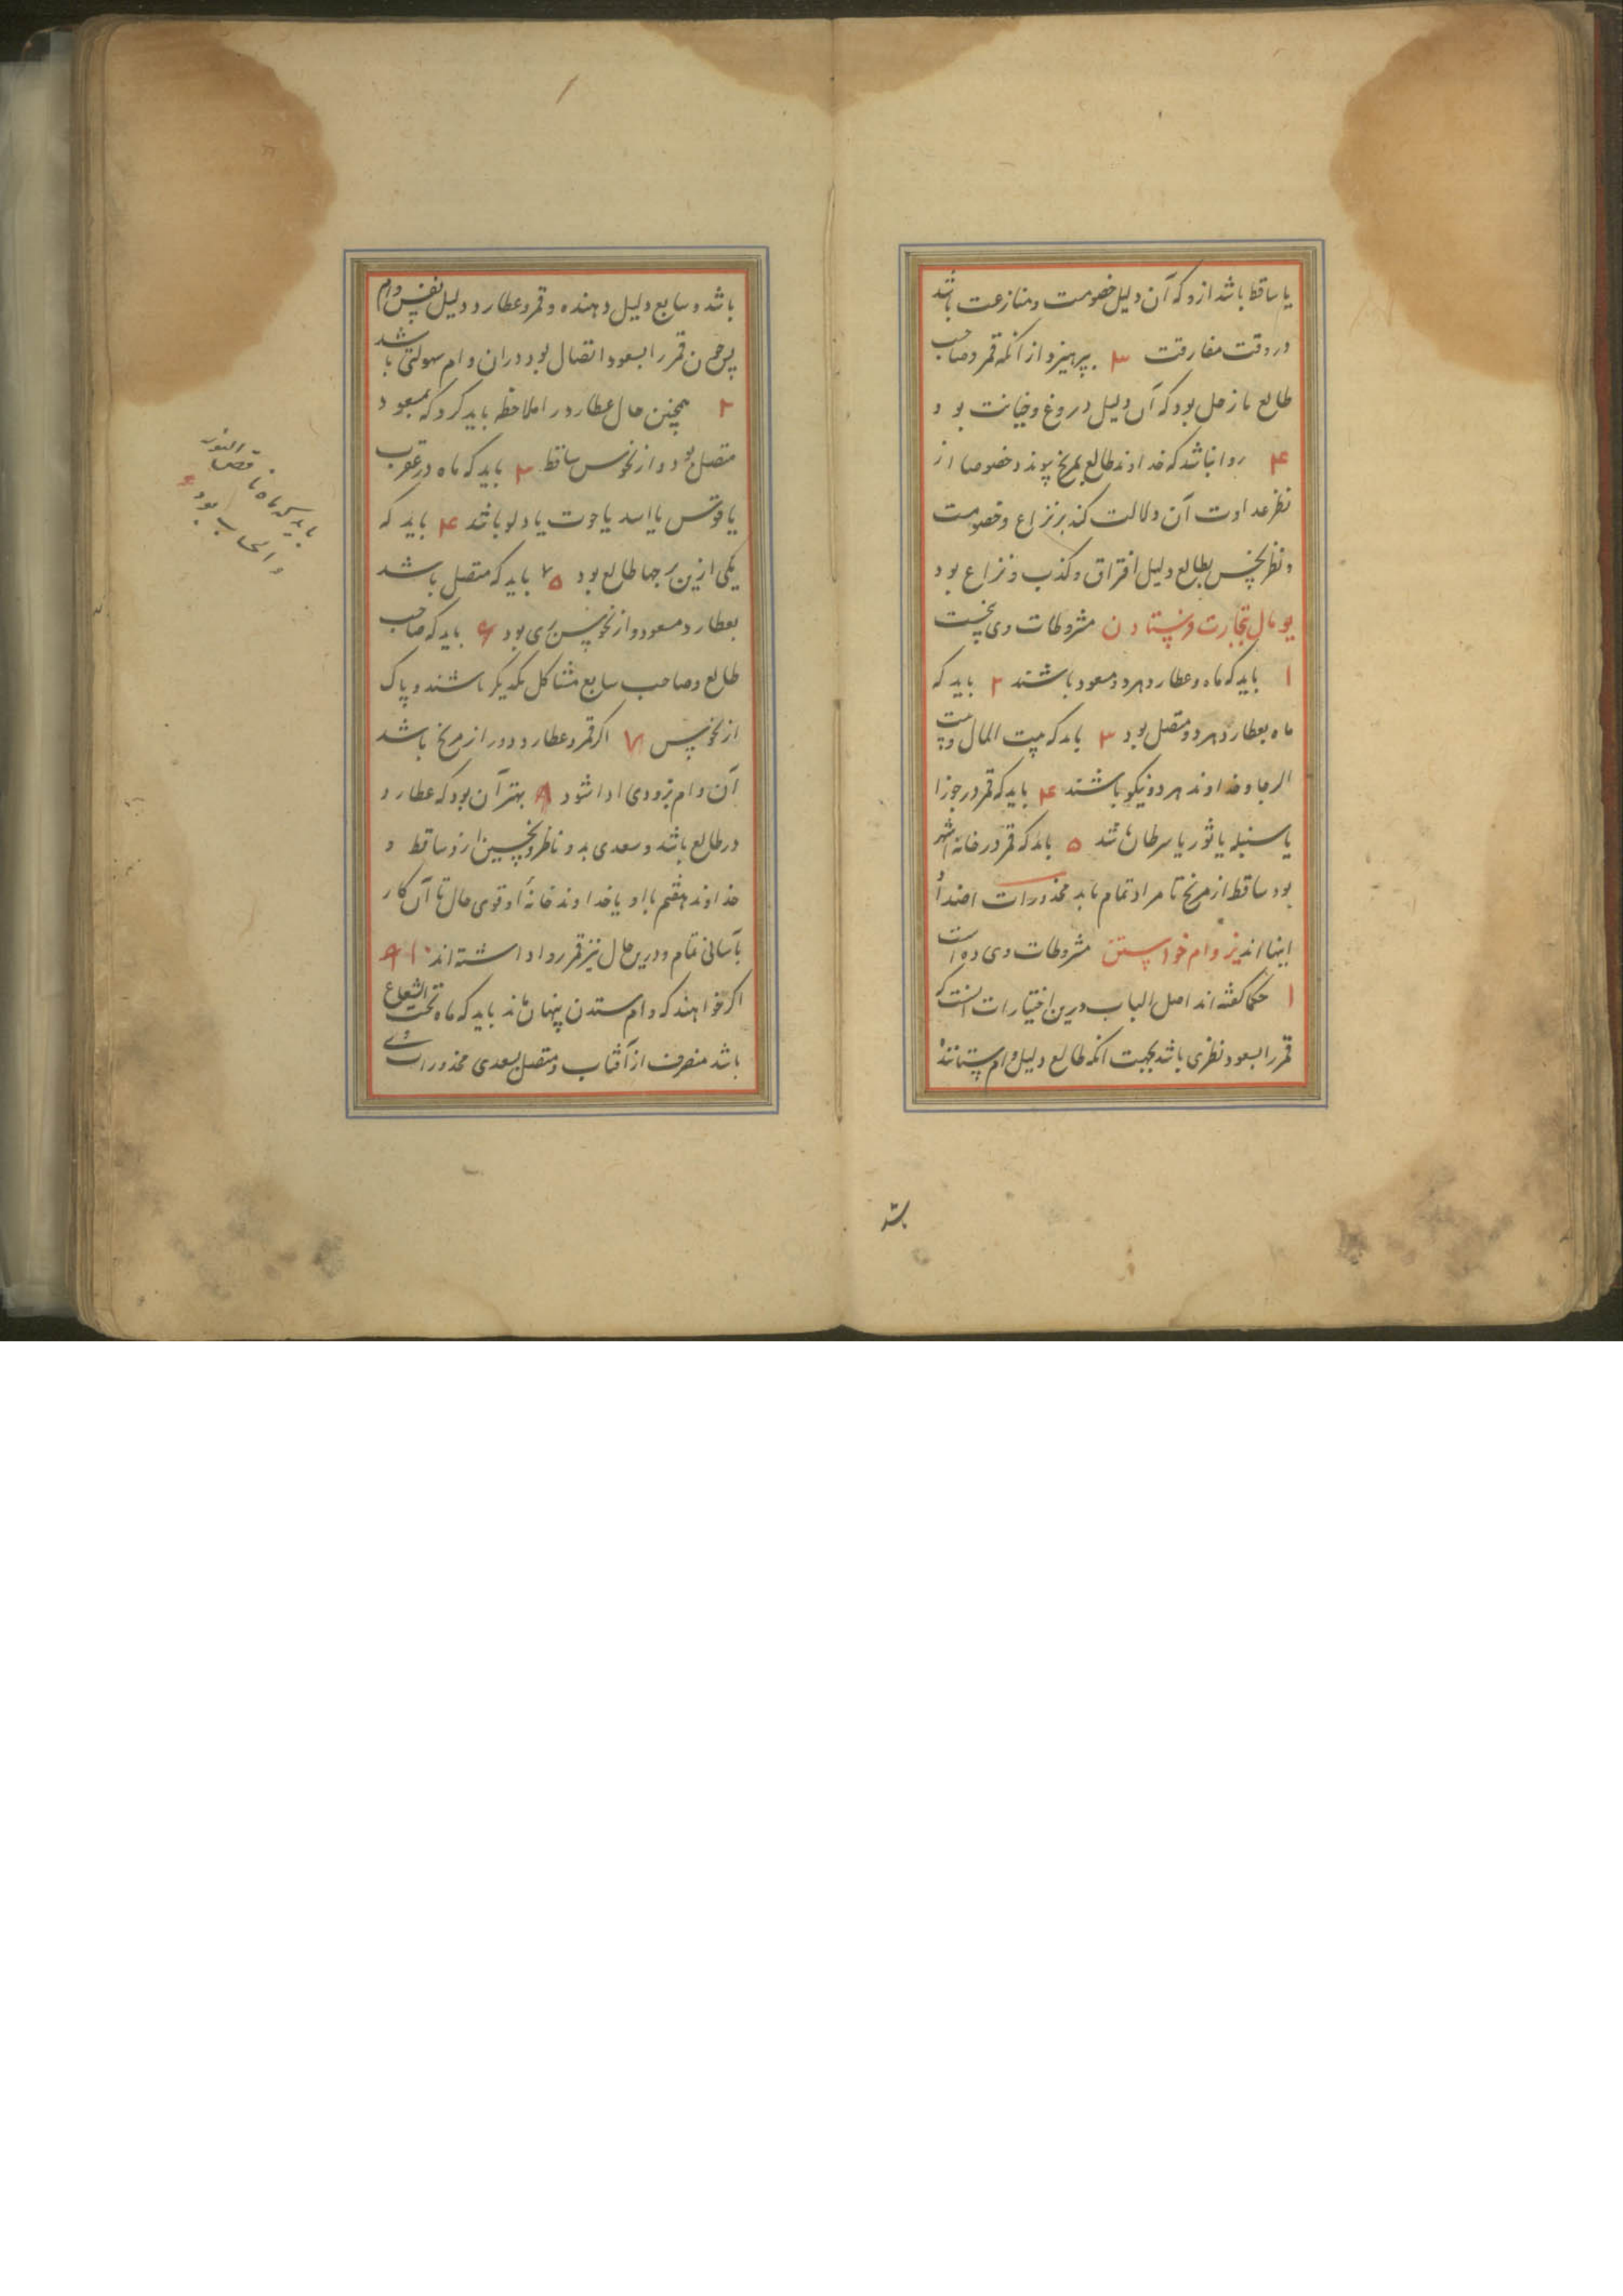 یا ساقط باشد ازو که آن دلیل خصومت و منازعت باشد
در وقت مفارقت ۳ بپرهیزد از آنکه قمر و صاحب
طالع با زحل بود که آن دلیل دروغ و خیانت بود
۴ روا نباشد که خداوند طالع بمریخ پیوندد خصوصا از
نظر عداوت آن دلالت کند بر نزاع و خصومت
و نظر نحس بطالع دلیل افتراق و کذب و نزاع بود
یو مال تجارت فرستادن مشروطات وی پنجست
۱ باید که ماه و عطارد هر دو مسعود باشند ۲ باید که
ماه بعطارد هر دو متصل بود ۳ باید که بیت المال و بیت
الرجا و خداوند هر دو نیکو باشند ۴ باید که قمر در جوزا
یا سنبله یا ثور یا سرطان باشد ۵ باید که قمر در خانه
بود ساقط از مریخ تا مراد تمام یابد محذورات اضداد
اینها اند یز وام خواستن مشروطات وی ده است
۱ حکما گفته اند اصل الباب درین اختیارات آنست که
قمر را بسعود نظری باشد بجهت آنکه طالع دلیل وام ستاننده
باشد
باشد و سابع دلیل دهنده و قمر و عطارد دلیل نفس وام
پس چون قمر را بسعود اتصال بود در آن وام سهولتی باشد
۲ همچنین حال عطارد را ملاحظه باید کرد که بسعود
متصل بود و از نحوس ساقط ۳ باید که ماه در عقرب
یا قوس یا اسد یا حوت یا دلو باشد ۴ باید که
یکی ازین برجها طالع بود ۵ باید که متصل باشد
بعطارد مسعود و از نحوس بری بود ۶ باید که صاحب
طالع و صاحب سابع مشاکل یکدیگر باشند و پاک
از نحوس ۷ اگر قمر و عطارد دور از مریخ باشد
آن وام بزودی ادا شود ۸ بهتر آن بود که عطارد
در طالع باشد و سعدی بدو ناظر و نحسین ازو ساقط و
خداوند هفتم با او یا خداوند خانه او قوی حال تا آن کار
بآسانی تمام و درین حال نیز قمر روا داشته اند ۹ ۱۰
اگر خواهند که وام ستدن پنهان ماند باید که ماه تحت الشعاع
باشد منصرف از آفتاب و متصل بسعدی محذورات وی
باید که ماه ناقص النور
و الحساب بود